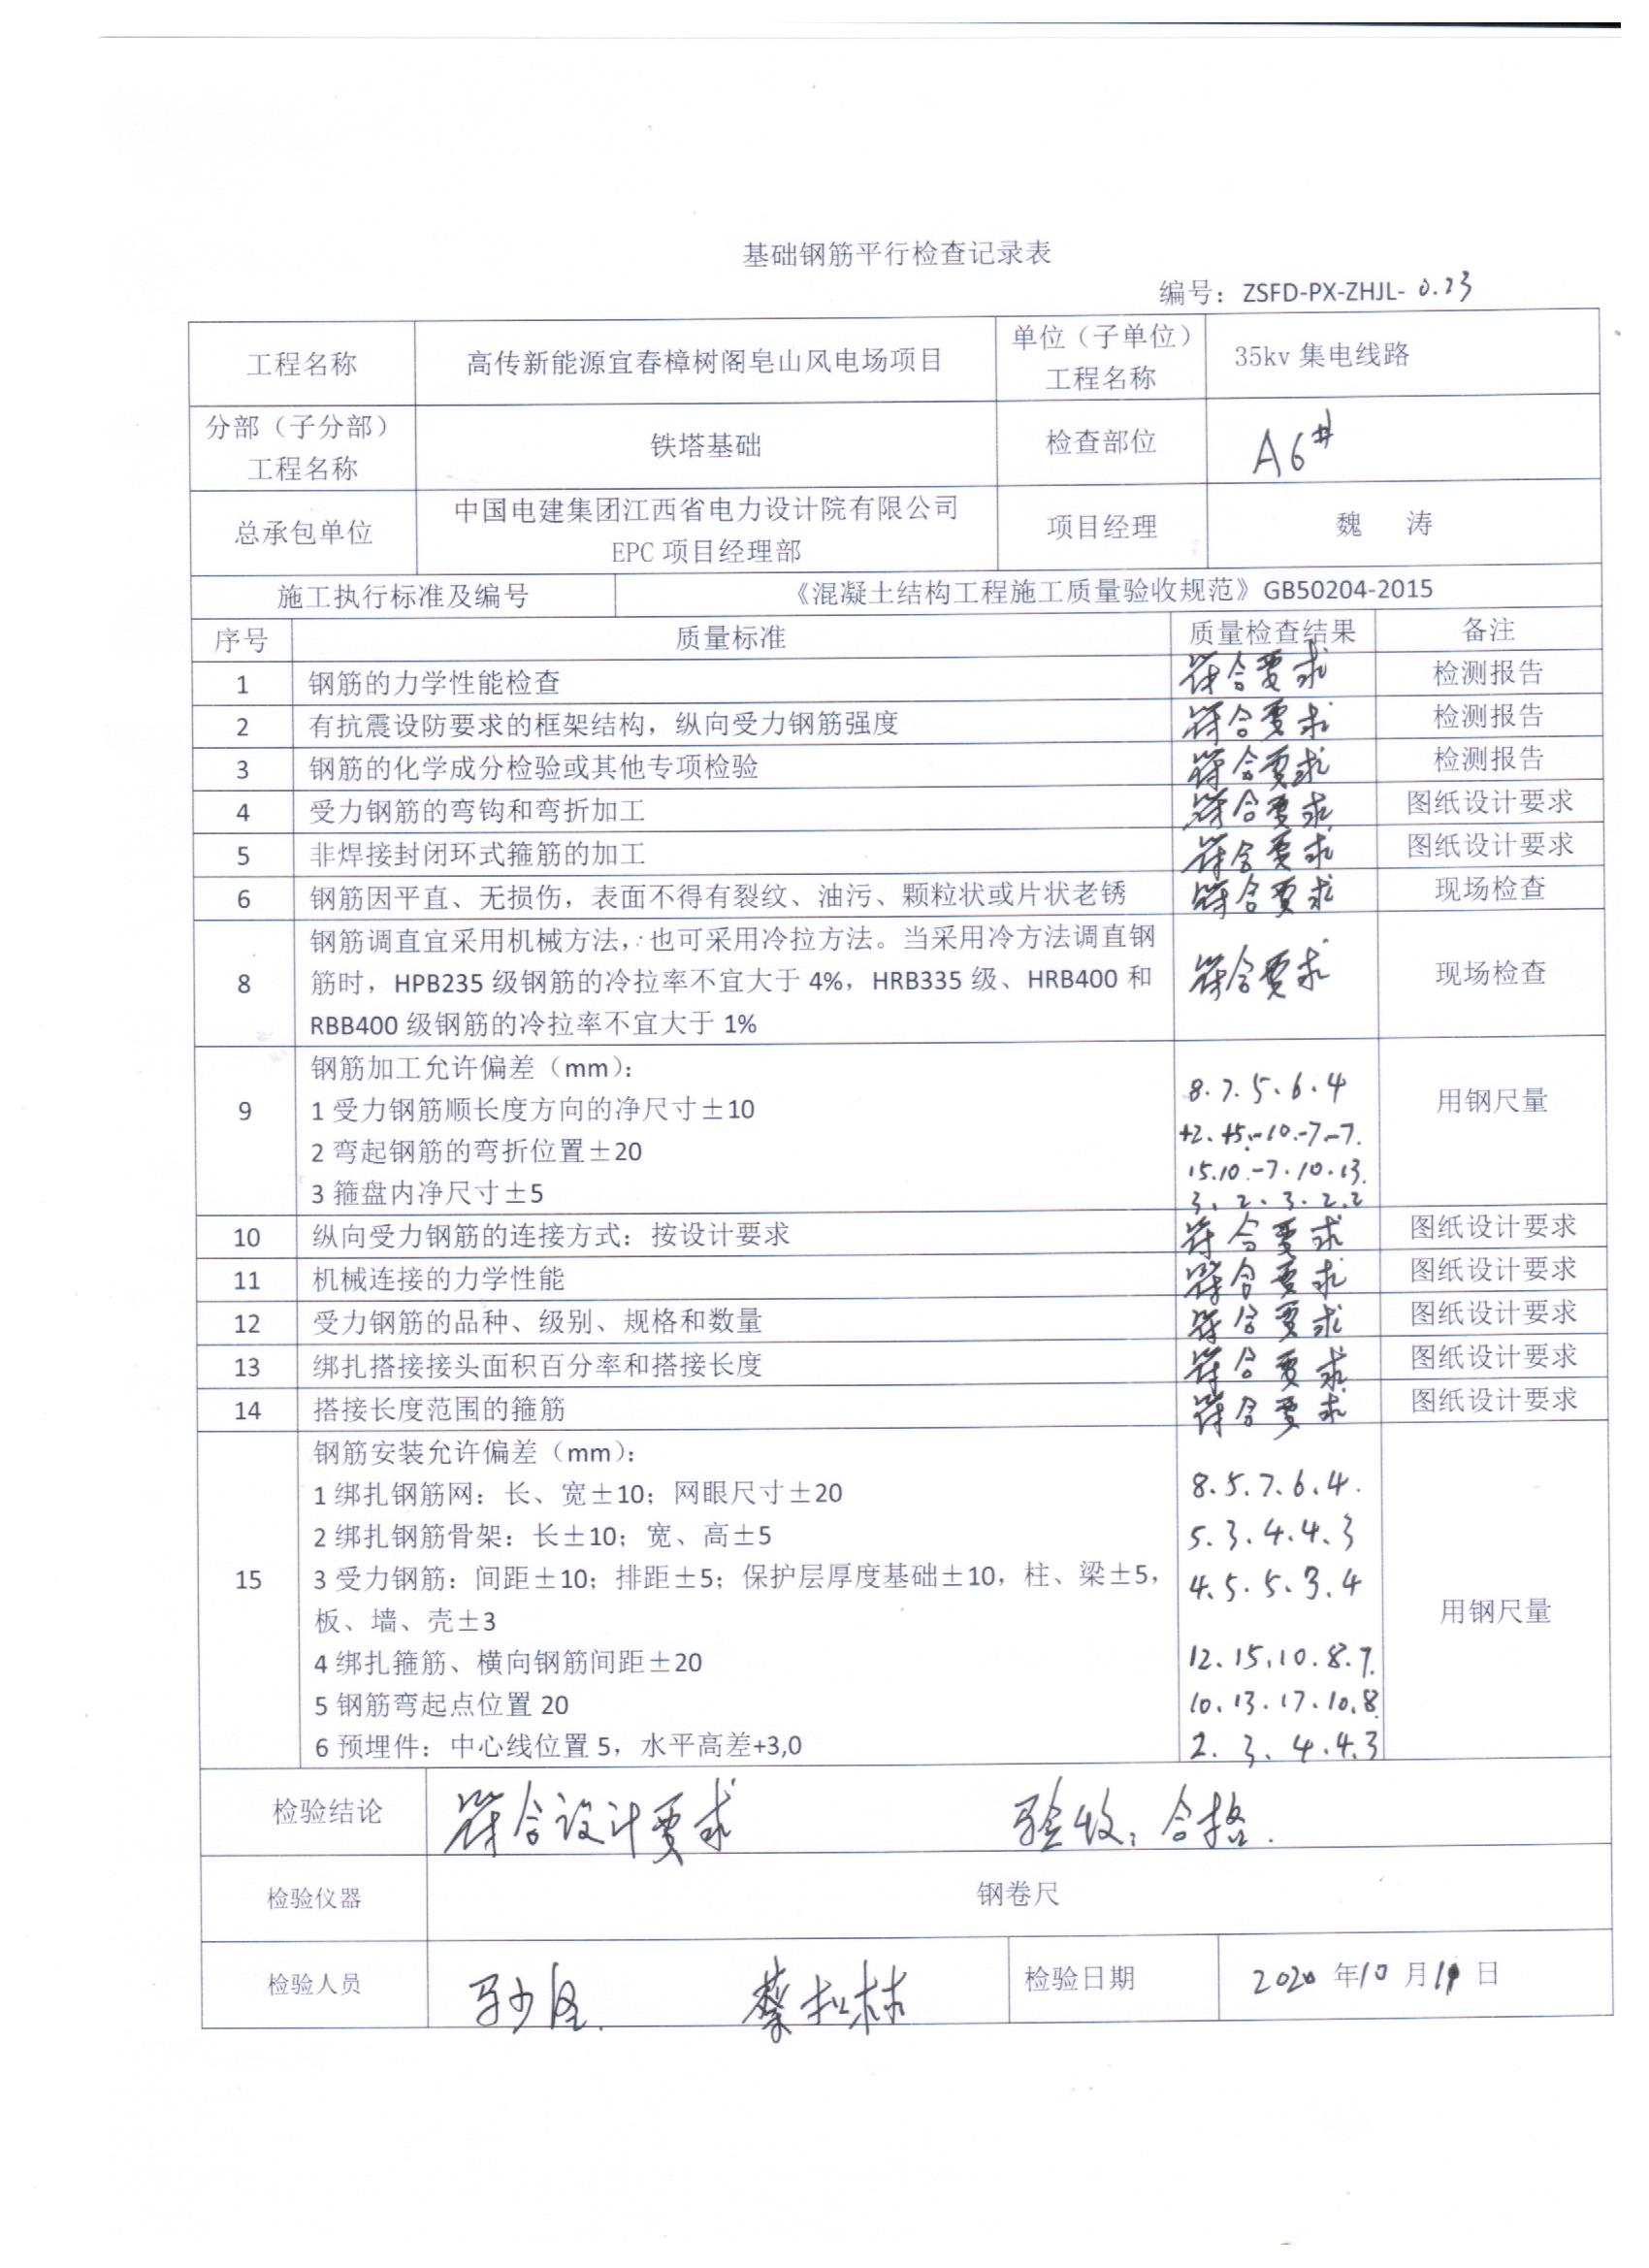 基础钢筋平行检查记录表
编号：ZSFD-PX-ZHJL- 0.23
工程名称 高传新能源宜春樟树阁皂山风电场项目 单位（子单位）工程名称 35kv 集电线路
分部（子分部）工程名称 铁塔基础 检查部位 A6#
总承包单位 中国电建集团江西省电力设计院有限公司
EPC 项目经理部 项目经理 魏 涛
施工执行标准及编号 《混凝土结构工程施工质量验收规范》GB50204-2015
序号 质量标准 质量检查结果 备注
1 钢筋的力学性能检查 符合要求 检测报告
2 有抗震设防要求的框架结构，纵向受力钢筋强度 符合要求 检测报告
3 钢筋的化学成分检验或其他专项检验 符合要求 检测报告
4 受力钢筋的弯钩和弯折加工 符合要求 图纸设计要求
5 非焊接封闭环式箍筋的加工 符合要求 图纸设计要求
6 钢筋因平直、无损伤，表面不得有裂纹、油污、颗粒状或片状老锈 符合要求 现场检查
钢筋调直宜采用机械方法，也可采用冷拉方法。当采用冷方法调直钢
8 筋时，HPB235 级钢筋的冷拉率不宜大于 4%，HRB335 级、HRB400 和 符合要求 现场检查
RBB400 级钢筋的冷拉率不宜大于 1%
钢筋加工允许偏差（mm）： 8.7.5.6.4
9 1 受力钢筋顺长度方向的净尺寸±10 +2.+5.-10.-7.-7. 用钢尺量
2 弯起钢筋的弯折位置±20 15.10.-7.10.13.
3 箍盘内净尺寸±5 3.2.3.2.2
10 纵向受力钢筋的连接方式：按设计要求 符合要求 图纸设计要求
11 机械连接的力学性能 符合要求 图纸设计要求
12 受力钢筋的品种、级别、规格和数量 符合要求 图纸设计要求
13 绑扎搭接接头面积百分率和搭接长度 符合要求 图纸设计要求
14 搭接长度范围的箍筋 符合要求 图纸设计要求
钢筋安装允许偏差（mm）：
1 绑扎钢筋网：长、宽±10；网眼尺寸±20 8.5.7.6.4.
2 绑扎钢筋骨架：长±10；宽、高±5 5.3.4.4.3
15 3 受力钢筋：间距±10；排距±5；保护层厚度基础±10，柱、梁±5， 4.5.5.3.4
板、墙、壳±3 用钢尺量
4 绑扎箍筋、横向钢筋间距±20 12.15.10.8.7.
5 钢筋弯起点位置 20 10.13.17.10.8.
6 预埋件：中心线位置 5，水平高差+3,0 2.3.4.4.3
检验结论 符合设计要求 验收：合格.
检验仪器 钢卷尺
检验人员 检验日期 2020 年10 月 日